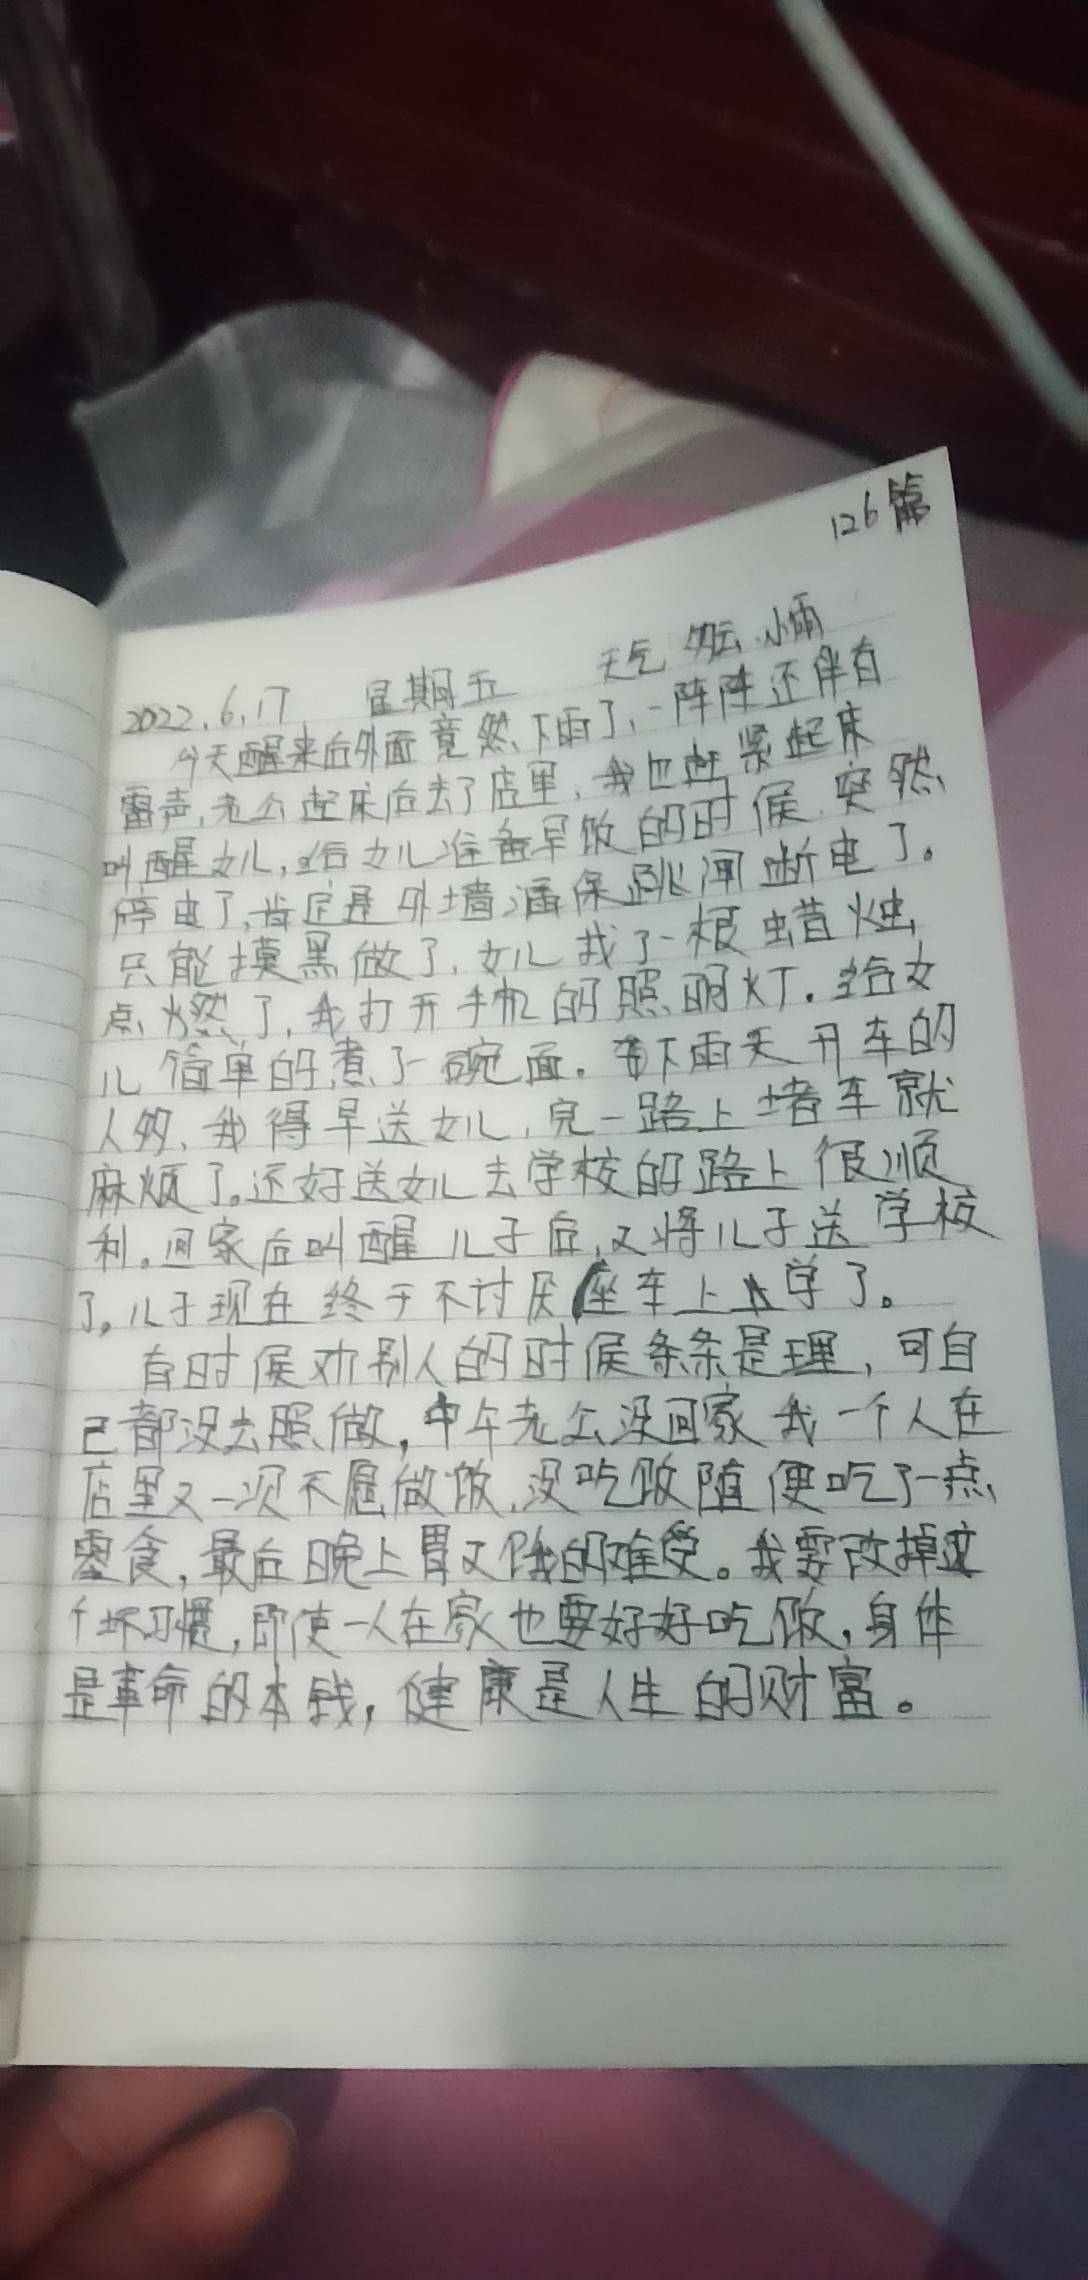 126篇
2022.6.17 星期五 天气 多云.小雨
今天醒来后外面竟然下雨了,一阵阵还伴有
雷声,老公起床后去了店里,我也赶紧起床
叫醒女儿,给女儿准备早饭的时候.突然
停电了,肯定是外墙漏保跳闸断电了。
只能摸黑做了,女儿找了一根蜡烛
点燃了,我打开手机的照明灯.给女
儿简单的煮了一碗面。下雨天开车的
人多,我得早送女儿,完一路上堵车就
麻烦了。还好送女儿去学校的路上很顺
利。回家后叫醒儿子后,又将儿子送学校
了。儿子现在终于不讨厌座车上学了。
有时候劝别人的时候条条是理,可自
己都没去照做,中午老公没回家我一个人在
店里又一次不愿做饭,没吃饭随便吃了一点
零食,最后晚上胃又饿的难受。我要改掉这
个坏习惯,即使一人在家也要好好吃饭,身体
是革命的本钱,健康是人生的财富。